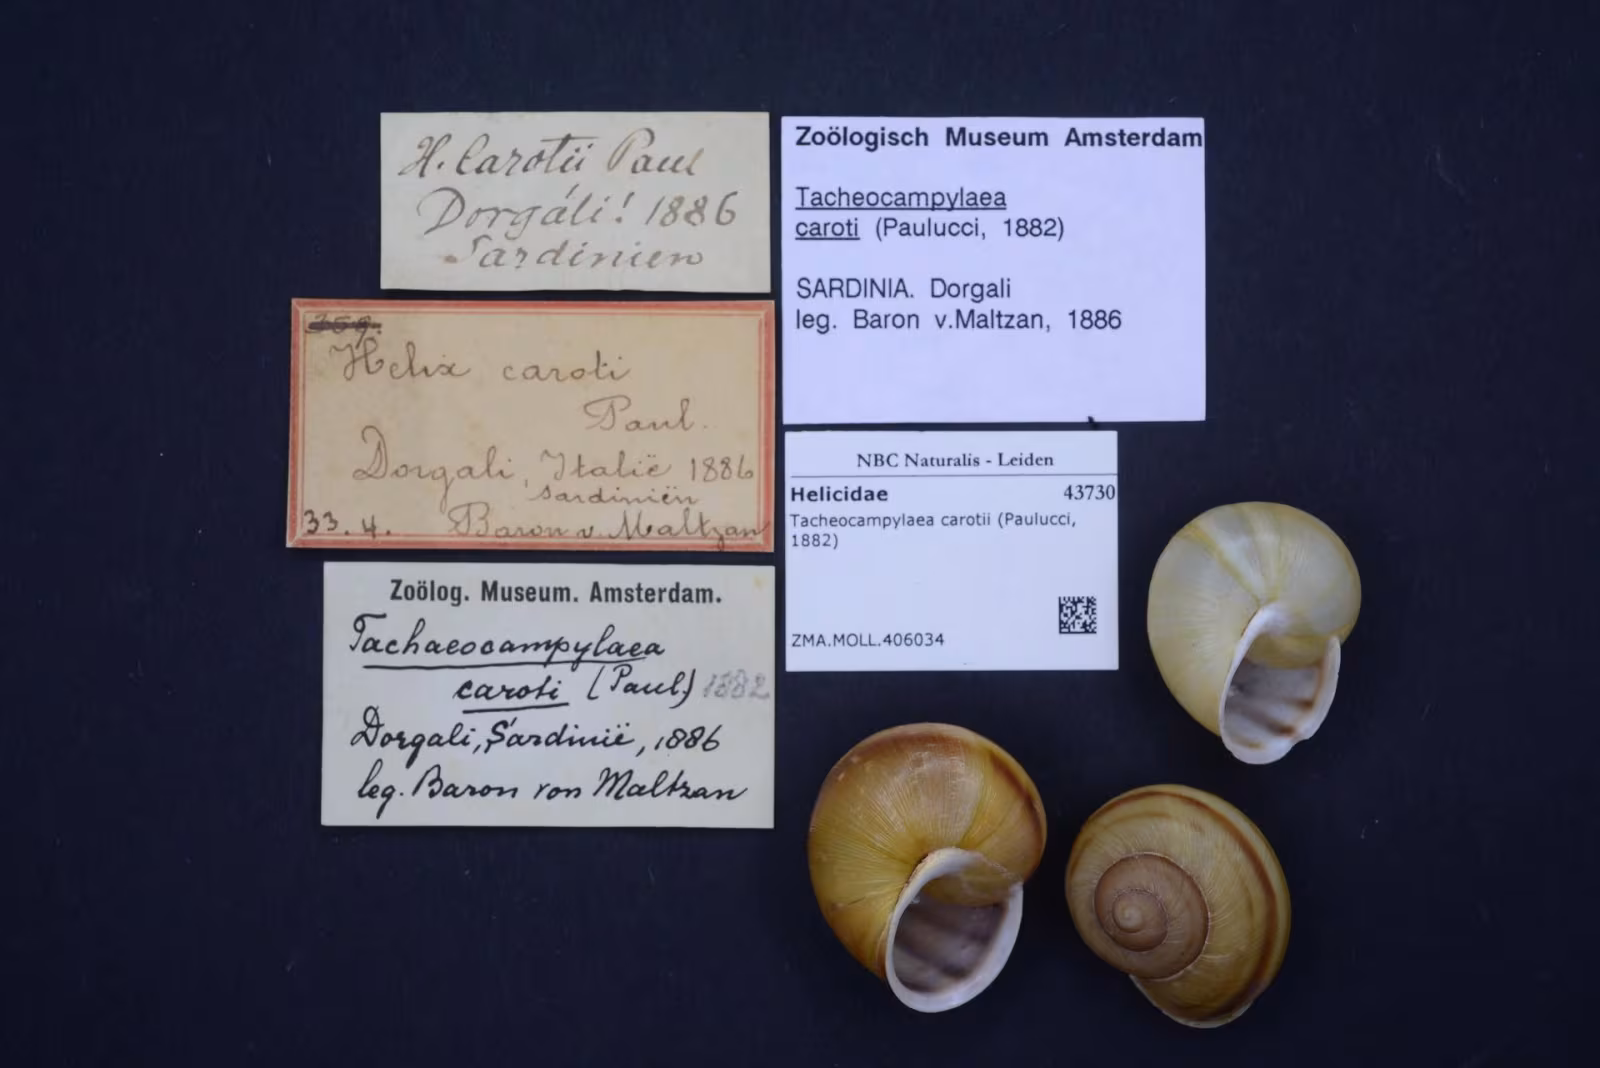 H. Carotii Paul
Dorgáli! 1886
Sardinien
359.
Helix caroti
Paul.
Dorgali, Italië 1886
Sardiniën
33.4. Baron v. Maltzan
Zoölog. Museum. Amsterdam.
Tachaeocampylaea
caroti (Paul) 1882
Dorgali, Sardinië, 1886
leg. Baron von Maltzan
Zoölogisch Museum Amsterdam
Tacheocampylaea
caroti (Paulucci, 1882)
SARDINIA. Dorgali
leg. Baron v.Maltzan, 1886
NBC Naturalis - Leiden
Helicidae 43730
Tacheocampylaea carotii (Paulucci,
1882)
ZMA.MOLL.406034